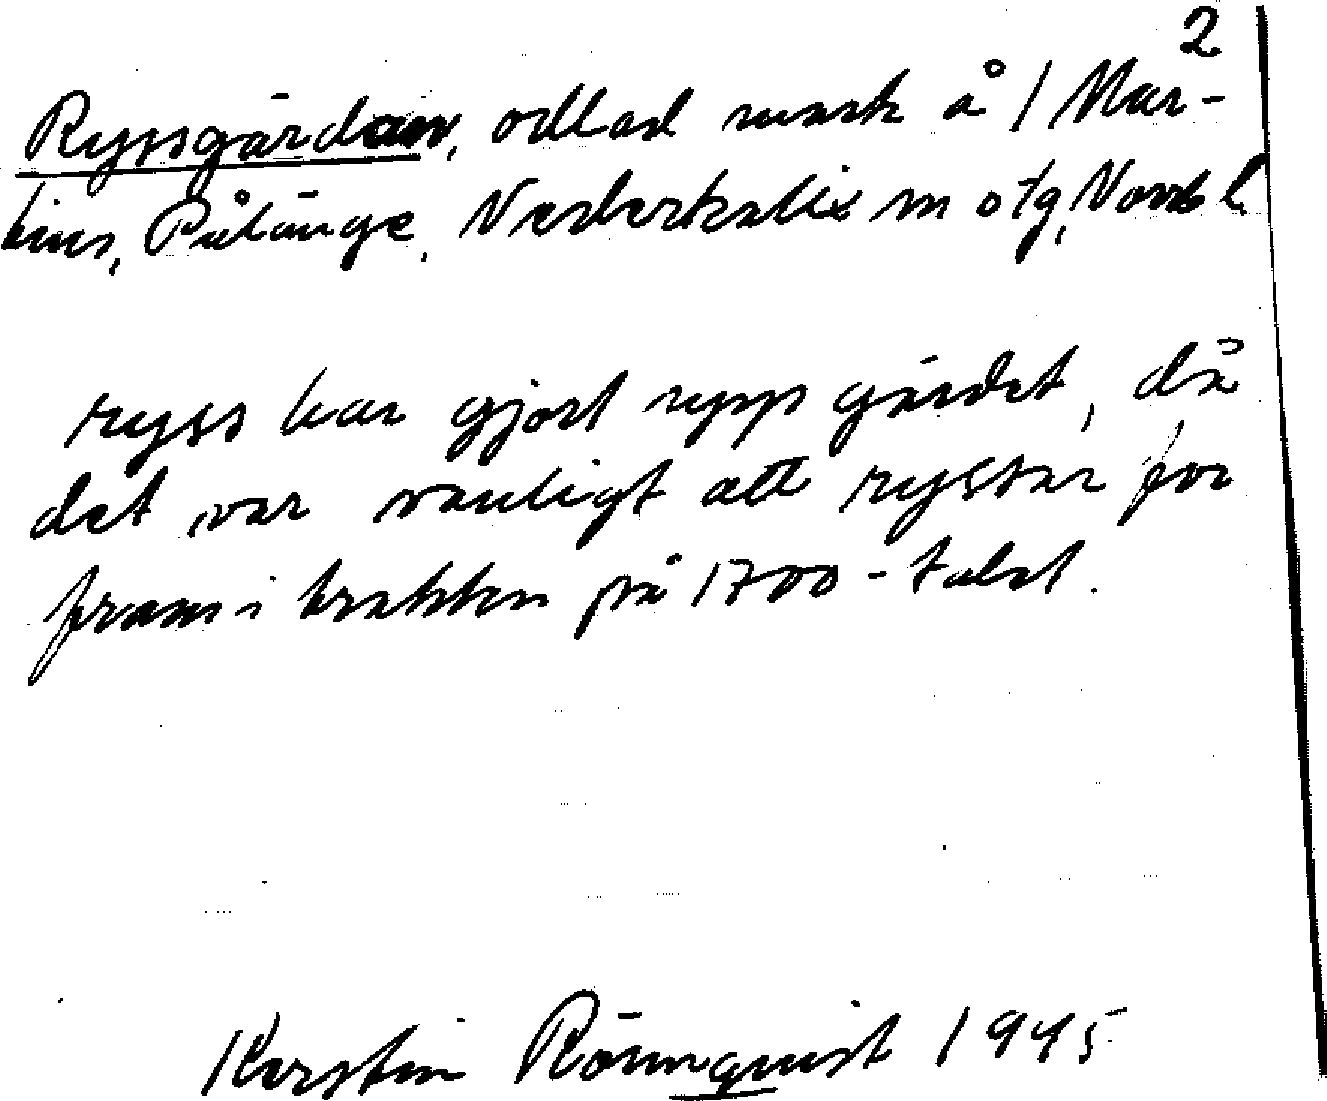 2
Ryssgärdan, odlad mark å 1 Mar-
tins, Pålänge, Nederkalix sn o tg, Norrb l
ryss har gjort upp gärdet, då
det var vanligt att ryssar for
fram i trakten på 1700-talet.
Kerstin Rönnquist 1945